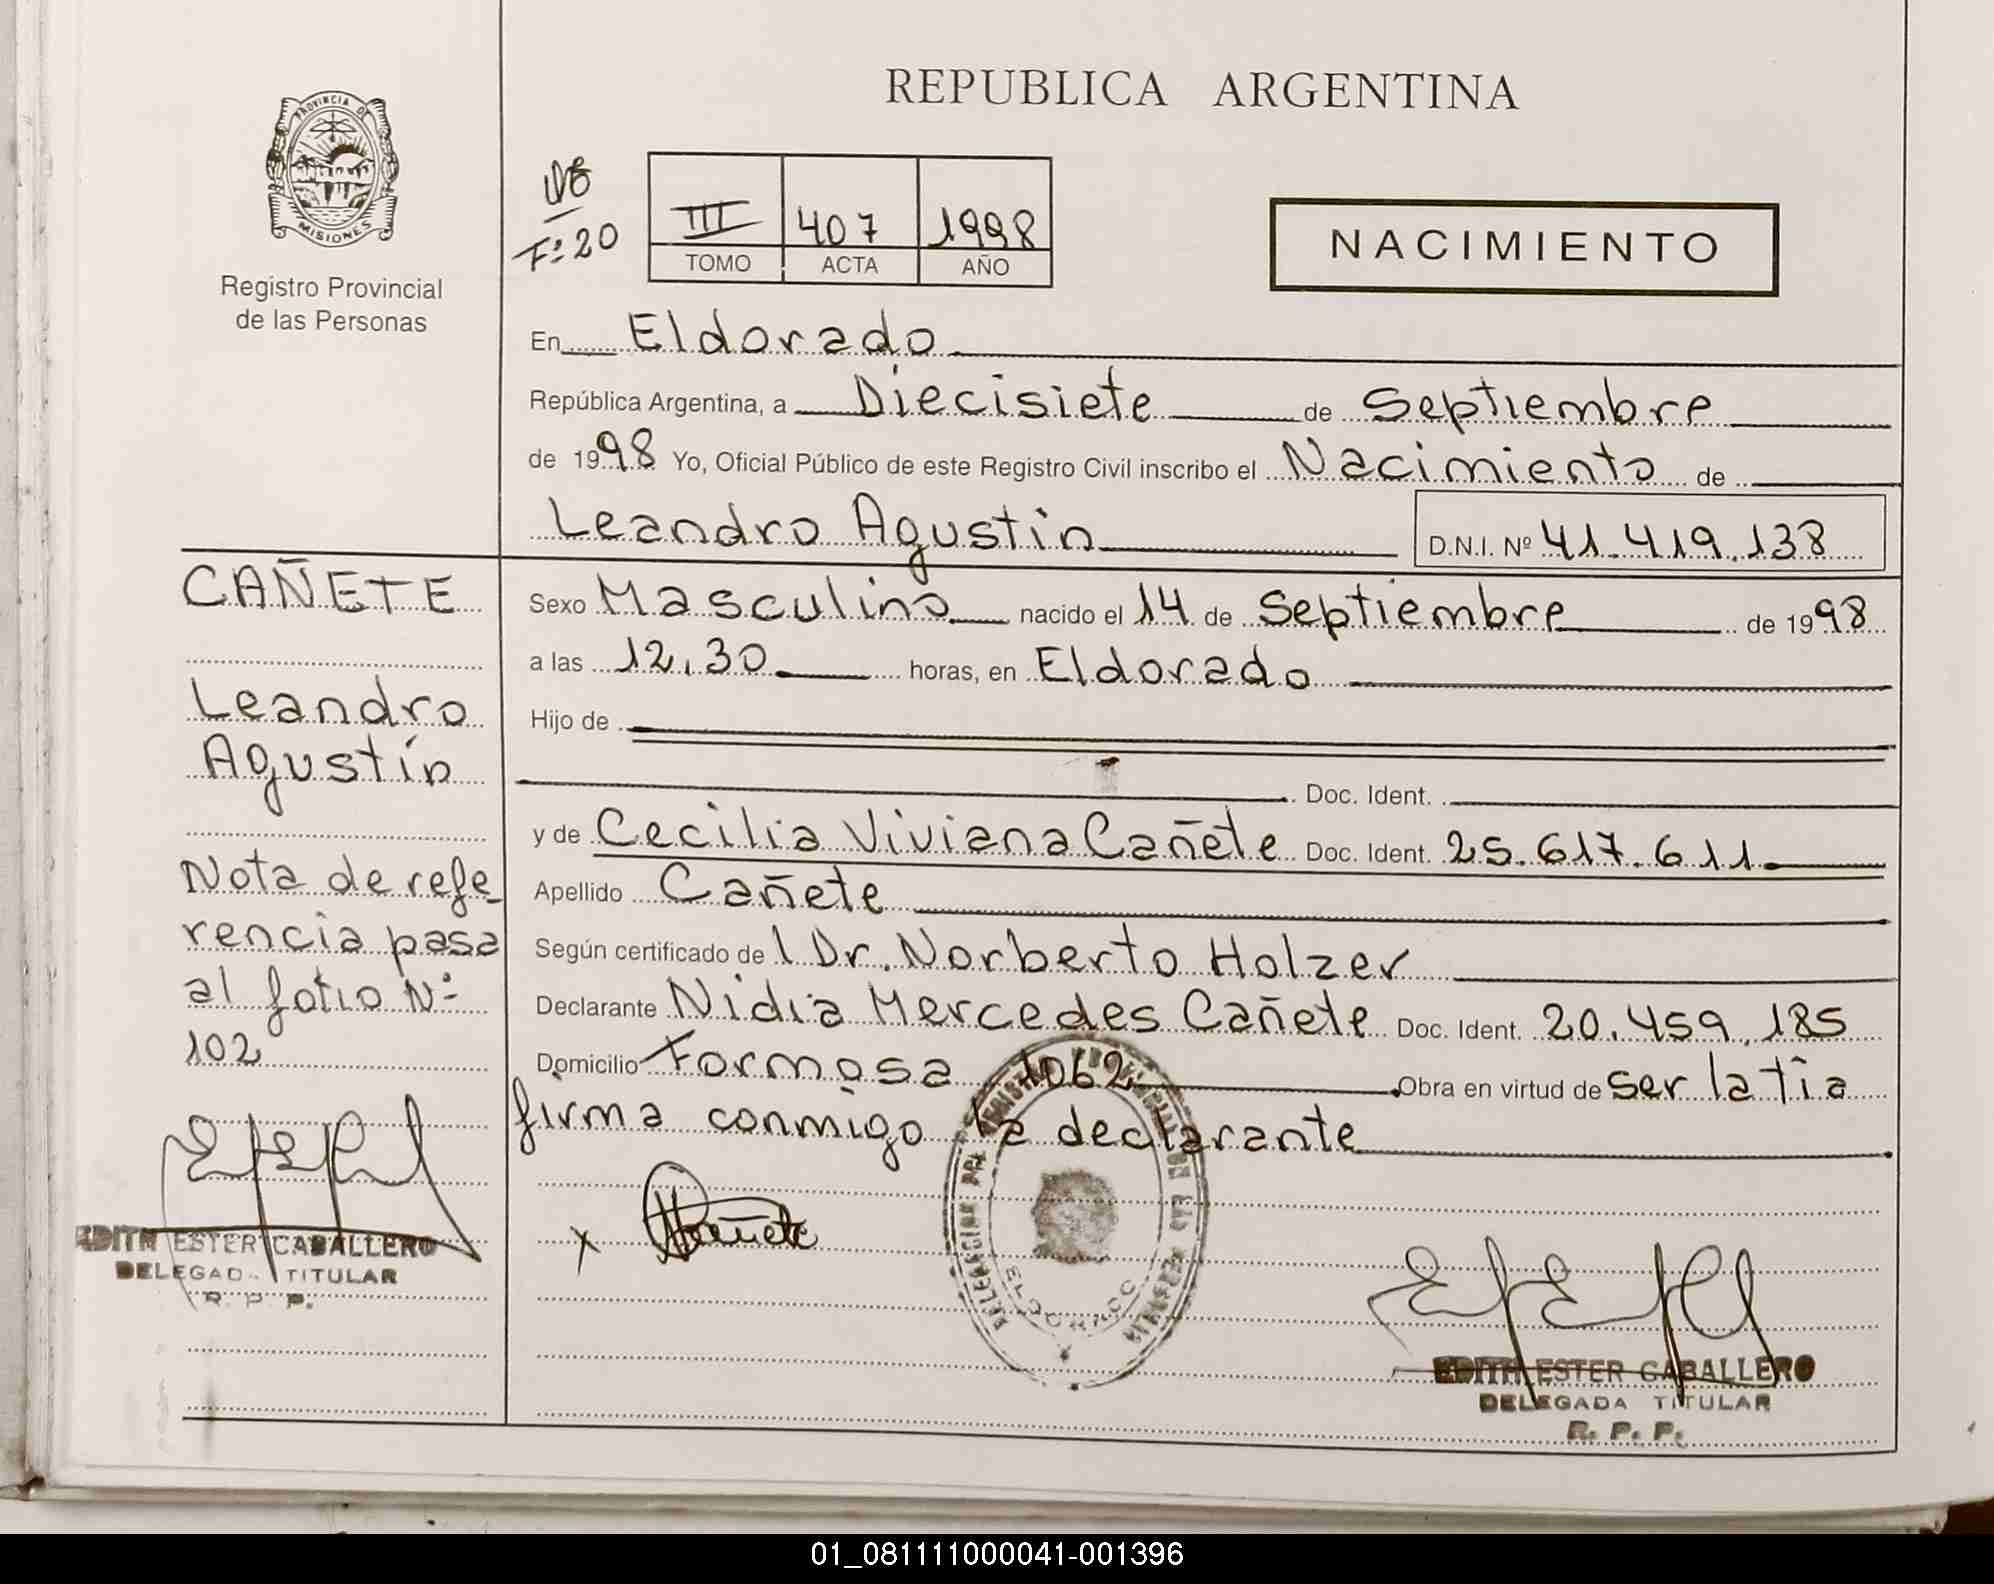 REPUBLICA ARGENTINA
PROVINCIA DE
MISIONES
Registro Provincial
de las Personas
Fº 20
III 407 1998
TOMO ACTA AÑO
NACIMIENTO
En Eldorado
República Argentina, a Diecisiete de Septiembre
de 1998 Yo, Oficial Público de este Registro Civil inscribo el Nacimiento de
Leandro Agustin D.N.I. Nº 41.419.138
CAÑETE
Leandro
Agustín
Nota de refe
rencia pasa
al folio Nº
102
EDITH ESTER CABALLERO
DELEGADA TITULAR
R. P. P.
Sexo Masculino nacido el 14 de Septiembre de 1998
a las 12.30 horas, en Eldorado
Hijo de
Doc. Ident.
y de Cecilia Viviana Cañete Doc. Ident. 25.617.611
Apellido Cañete
Según certificado del Dr. Norberto Holzer
Declarante Nidia Mercedes Cañete Doc. Ident. 20.459.185
Domicilio Formosa 1062 Obra en virtud de ser la tía
firma conmigo la declarante
x Cañete
ELDORADO
EDITH ESTER CABALLERO
DELEGADA TITULAR
R. P. P.
01_081111000041-001396